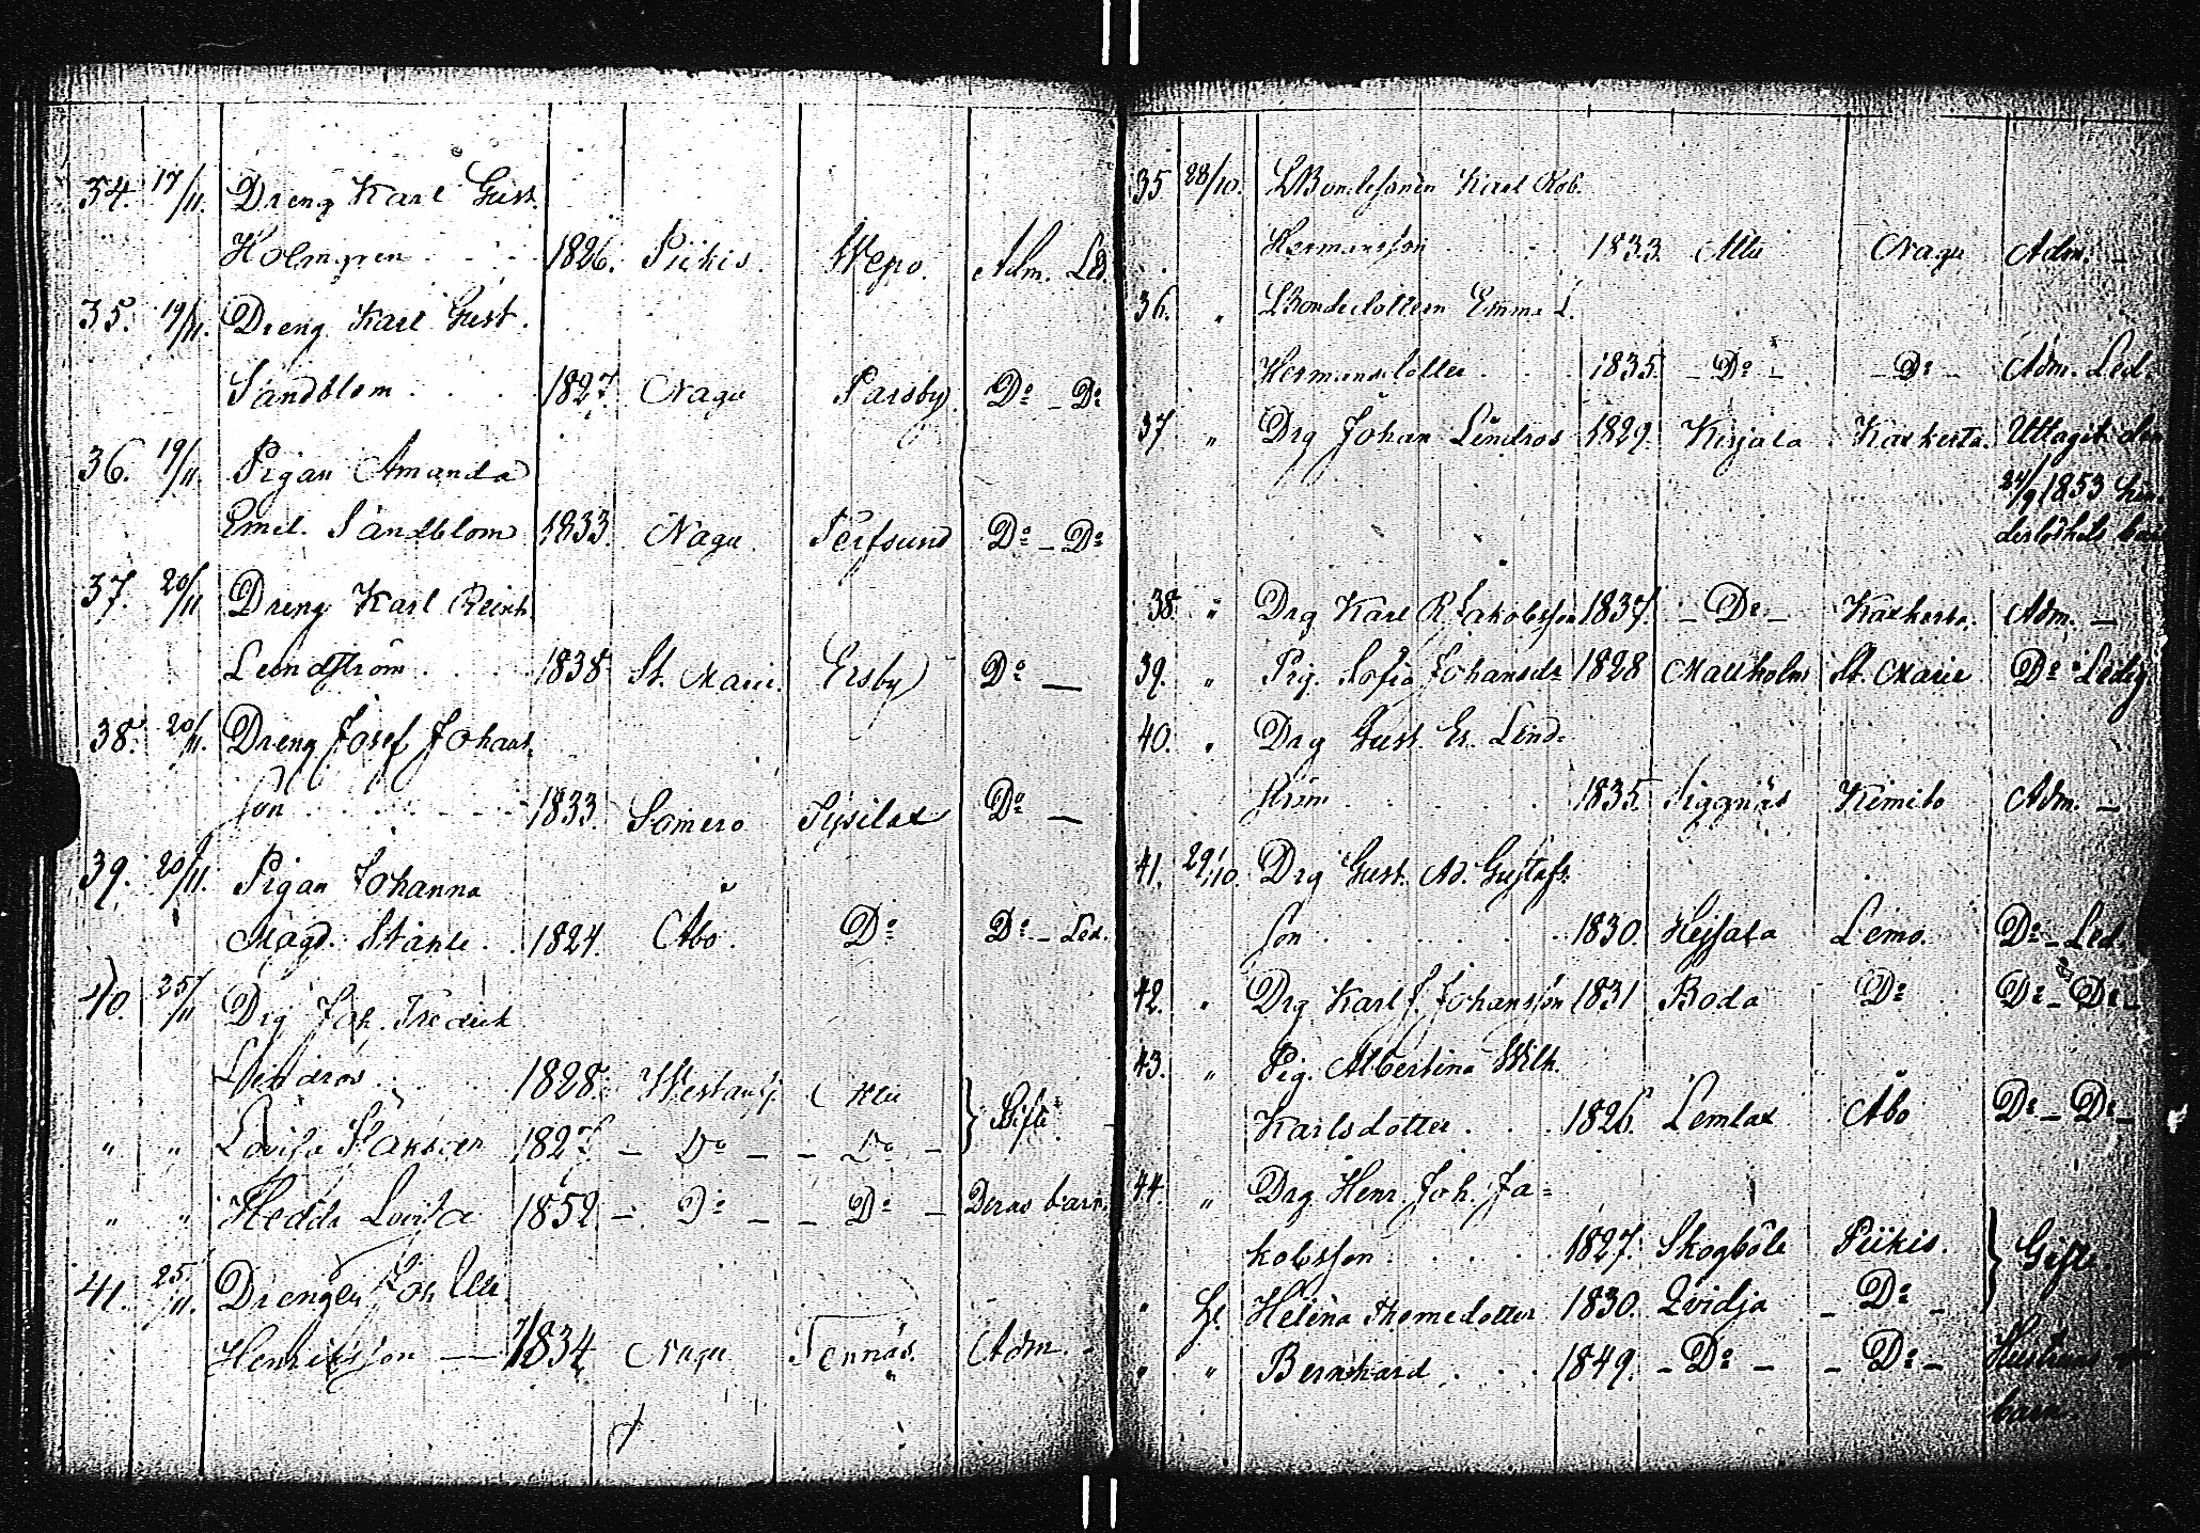 34. 17/11. Dreng Karl Gust.
Holmgren . . . 1826. Piikis. Wepo. Adm. Led.
35. 19/11. Dreng Karl Gust.
Sandblom . . . 1827. Nagu Parsby. Do - Do
36. 19/11. Pigan Amanda
Emil. Sandblom 1833. Nagu. Do - Do
37. 20/11 Dreng Karl Reinh.
Lundström . . . 1838 St. Marie. Ersby Do —
38. 20/11. Dreng Josef Johans
son . . . . . . 1833. Somero Sysilax Do —
39. 20/11. Pigan Johanna
Magd. Ståhle . . 1824. Åbo. Do Do - Led.
40. 25/11 Drg Joh. Fredrik
Lindros . . . . 1828. } Gifte.
" " Lovisa 1827 - Do - - Do -
" " Hedda Lovisa 1852. - Do - - Do - Deras barn.
41. 25/11. Drengen Joh
Henriksson — 1834 Nagu Tennäs. Adm. -
35 28/10. LBondesonen Karl Rob.
Hermansson . . . 1833. Attu Nagu Adm. -
36. " LBondedottern Emma L.
Hermansdotter . . 1835. - Do - - Do - Adm. Led.
37 " Drg Johan Lindros 1829. Kirjala Kakkerta. Uttagit den
24/9 1853
derlöshets
38. " Drg Karl R. Jakobsson 1837. - Do - Kakkerta. Adm. —
39. " Pig. Sofia Johansdr 1828 Mattholm St. Marie Do Ledig
40. " Drg Gust. Er. Lind=
ström . . . . . 1835. Siggnäs Kimito Adm. —
41. 29/10. Drg Gust. Ad. Gustafs=
son . . . . . . 1830. Lemo. Do - Led.
42. " Drg Karl F. Johansson 1831 Roda Do Do - Do -
43. " Pig. Albertina Wilh.
Karlsdotter . . . 1826. Lemlax Åbo Do - Do -
44. " Drg Henr. Joh. Ja=
kobsson . . . . 1827. Skogböle Piikis. } Gifte.
" H. Helena Thomedotter 1830. Qvidja - Do -
" " Bernhard . . . 1849. - Do - - Do - Hustruns
barn.